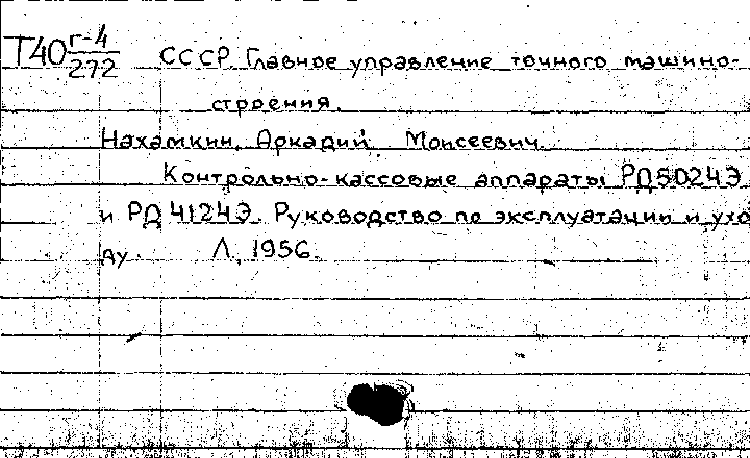 Т40 г-4/272 СССР. Главное управление точного машино-
строения.
Нахамкин, Аркадий Моисеевич.
Контрольно-кассовые аппараты РД5024Э
и РД4124Э. Руководство по эксплуатации и ухо
ду. Л., 1956.